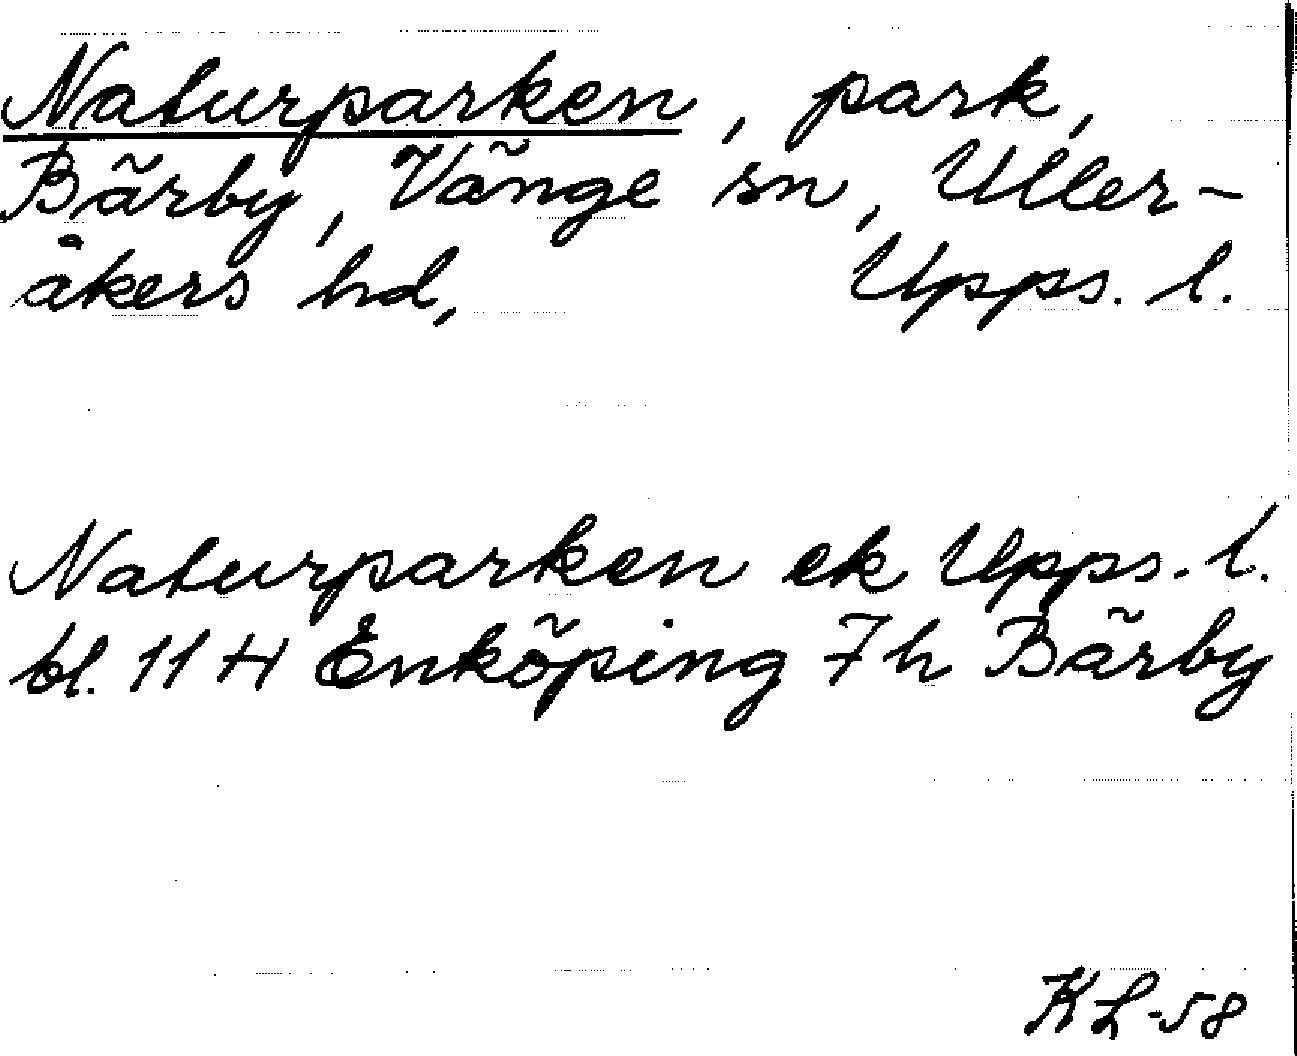 Naturparken, park,
Bärby, Vänge sn, Uller-
åkers hd, Upps. l.
Naturparken ek Upps. l.
bl. 11 H Enköping 7h Bärby
KL-58